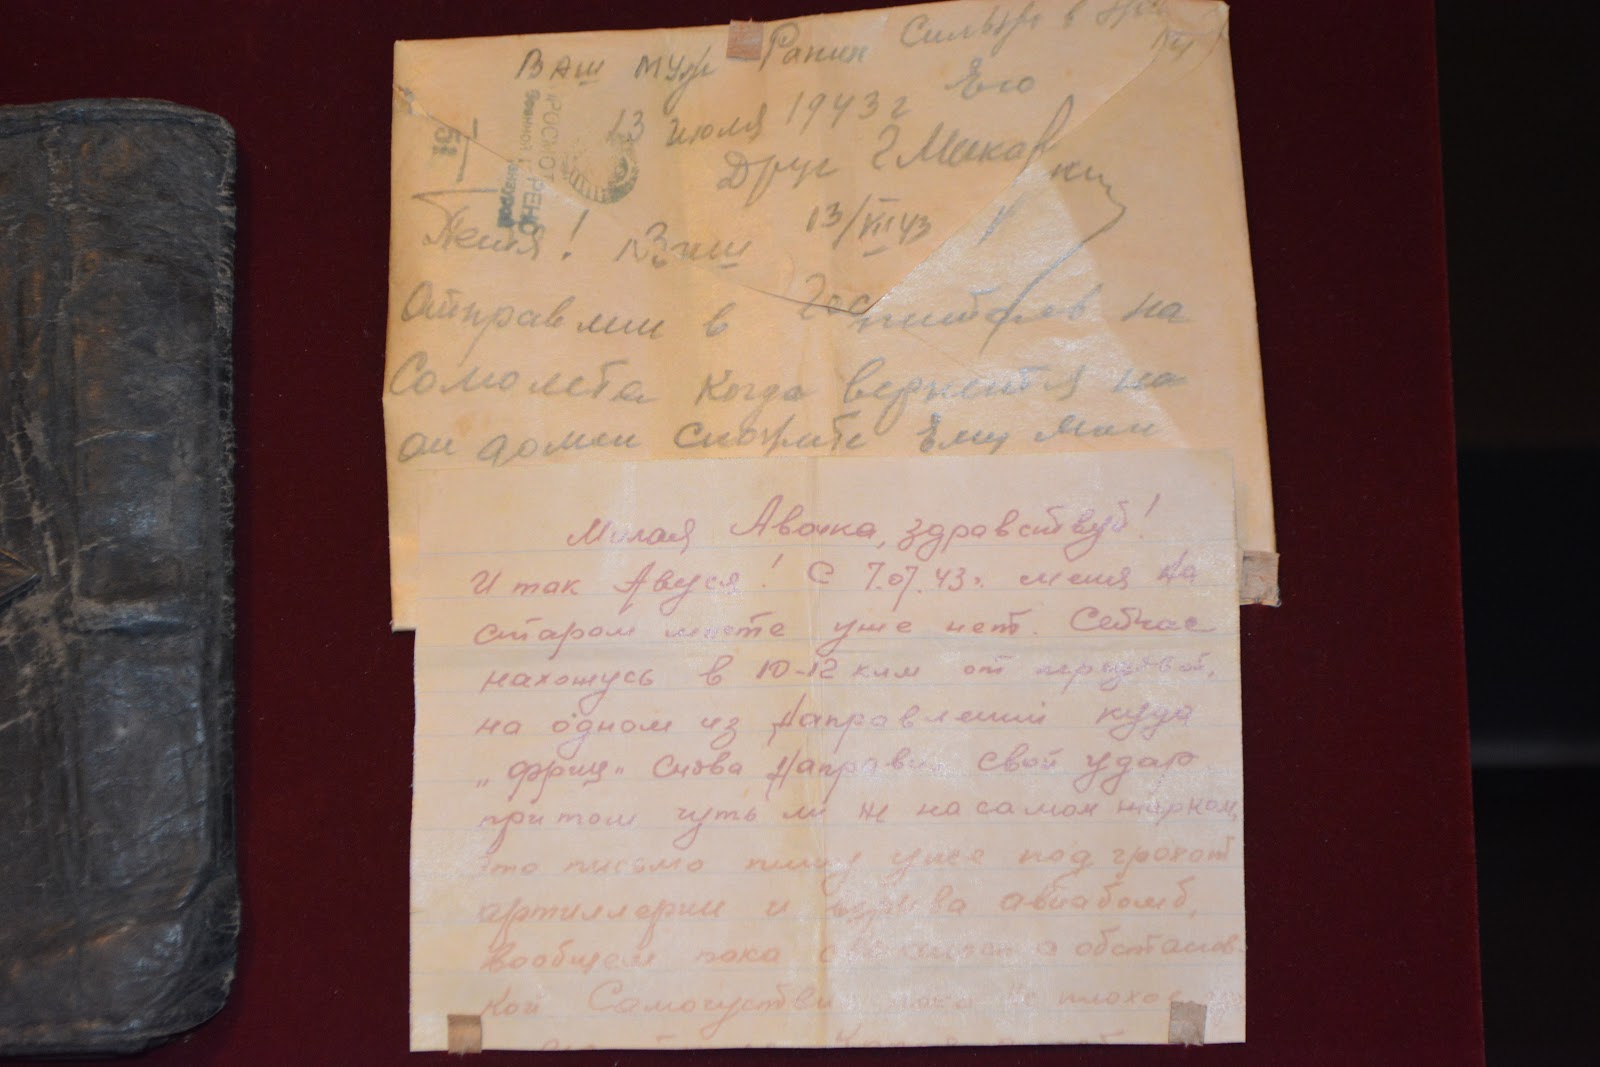 Ваш муж Ранин Сильно в
13 июля 1943 г Его
Друг
ПРОСМОТРЕНО
Военной Цензурой
51
13/VII 43
Отправлии в Госпиталь на
Самолете когда вернется на
ои домои
Милая Авочка, здравствуй!
И так Авуся! С 7.07.43 г. меня на
старом месте уже нет. Сейчас
нахожусь в 10-12 клм от передовой,
на одном из направлений куда
„фриц" снова направил свой удар
притом чуть ли не на самом жарком,
это письмо пишу уже под грохот
артиллерии и взрыва авиабомб,
вообщем пока обстанов-
кой Самочувствие пока не плохое